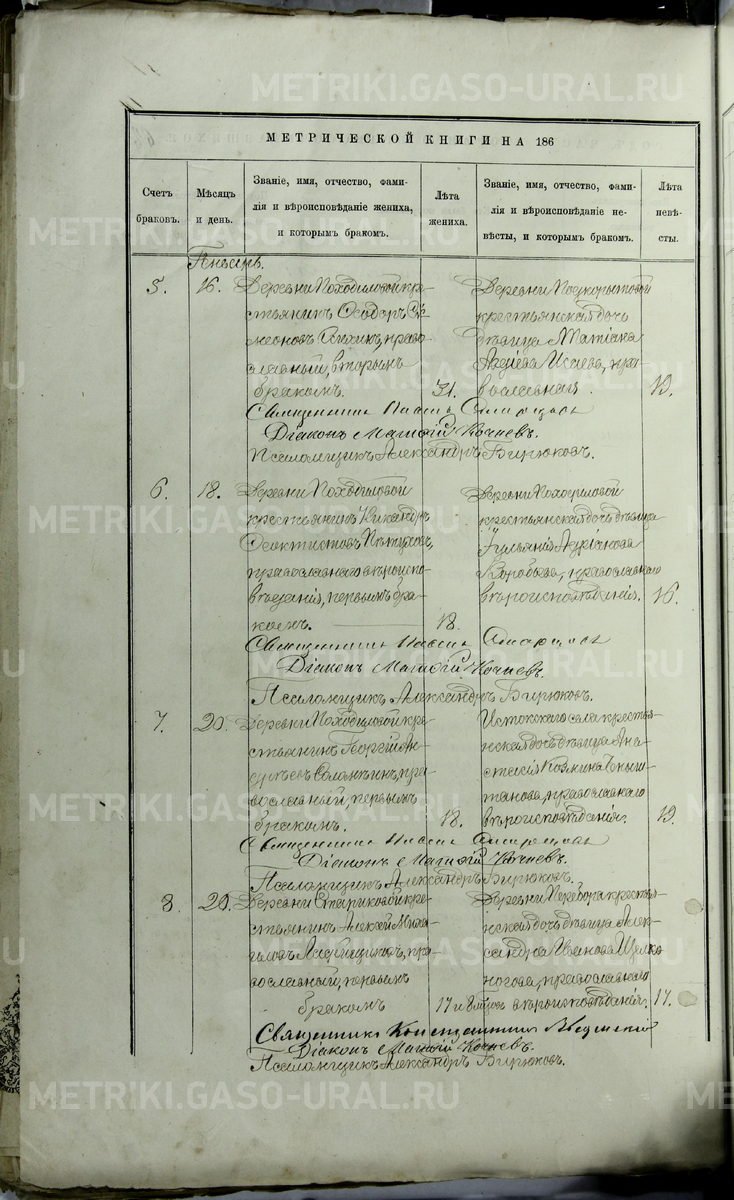 МЕТРИЧЕСКОЙ КНИГИ НА 186
Счетъ браковъ.
Мѣсяцъ и день.
Званіе, имя, отчество, фами-
лія и вѣроисповѣданіе жениха,
и которымъ бракомъ.
Лѣта жениха.
Званіе, имя, отчество, фами-
лія и вѣроисповѣданіе не-
вѣсты, и которымъ бракомъ.
Лѣта невѣ-
сты.
Январь.
5. 16.
Деревни Походиловой кре-
стьянинъ Ѳеодоръ Си-
меоновъ право-
славный, вторымъ
бракомъ.
31.
Деревни
крестьянская дочь
дѣвица Татіана
Исаева, пра-
вославная.
19.
Священникъ
Діаконъ Матѳій Кочневъ.
Псаломщикъ Александръ Бирюковъ.
6. 18.
Деревни Походиловой
крестьянинъ Никандръ
Ѳеоктистовъ Пѣтуховъ,
православнаго вѣроиспо-
вѣданія, первымъ бра-
комъ.
18.
Деревни Походиловой
крестьянская дочь дѣвица
Іульянія Адріанова
Воробьева, православнаго
вѣроисповѣданія.
16.
Священникъ
Діаконъ Матѳій Кочневъ.
Псаломщикъ Александръ Бирюковъ.
7. 20.
Деревни Походиловой кре-
стьянинъ Георгій Ан-
дреевъ пра-
вославный, первымъ
бракомъ.
18.
Истокскаго села крестья-
нская дочь дѣвица Ана-
стасія Козмина
православнаго
вѣроисповѣданія.
19.
Священникъ
Діаконъ Матѳій Кочневъ.
Псаломщикъ Александръ Бирюковъ.
8. 20.
Деревни Стариковой кре-
стьянинъ Алексѣй Миха-
иловъ пра-
вославный, первымъ
бракомъ
17 и
Деревни Перебора крестья-
нская дочь дѣвица Алек-
сандра Иванова Щелко-
ногова, православнаго
вѣроисповѣданія.
17.
Священникъ Константинъ
Діаконъ Матѳій Кочневъ.
Псаломщикъ Александръ Бирюковъ.
METRIKI.GASO-URAL.RU